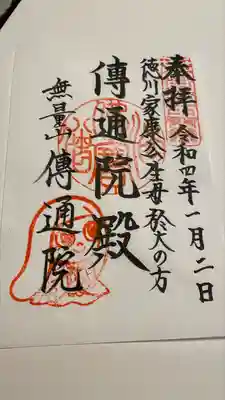 奉拝 令和四年一月二日
徳川家康公生母於大の方
傳通院殿
無量山 傳通院